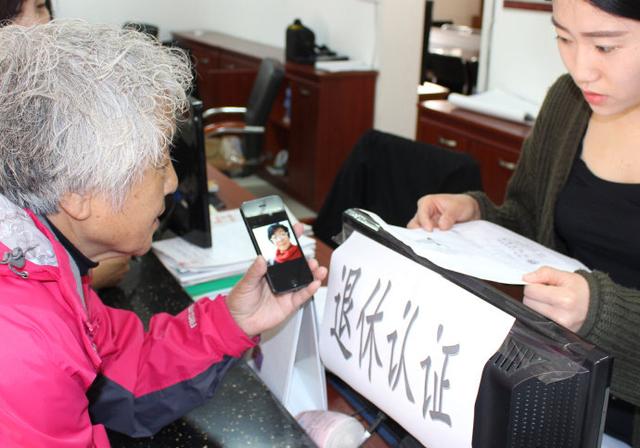 退休认证